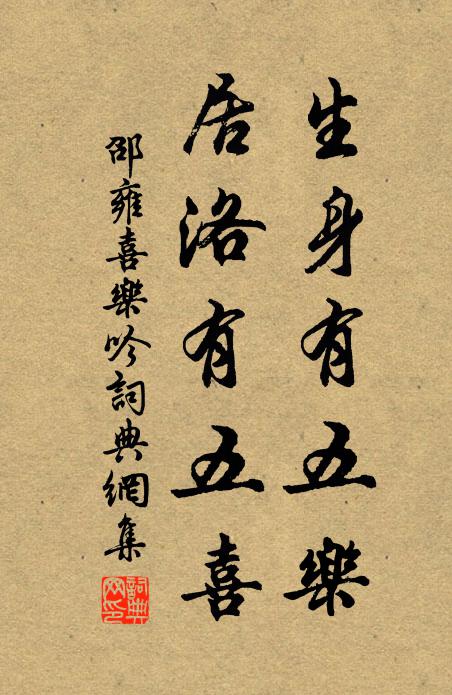 生身有五樂
居洛有五喜
邵雍喜樂吟詞典網集
詞典網印